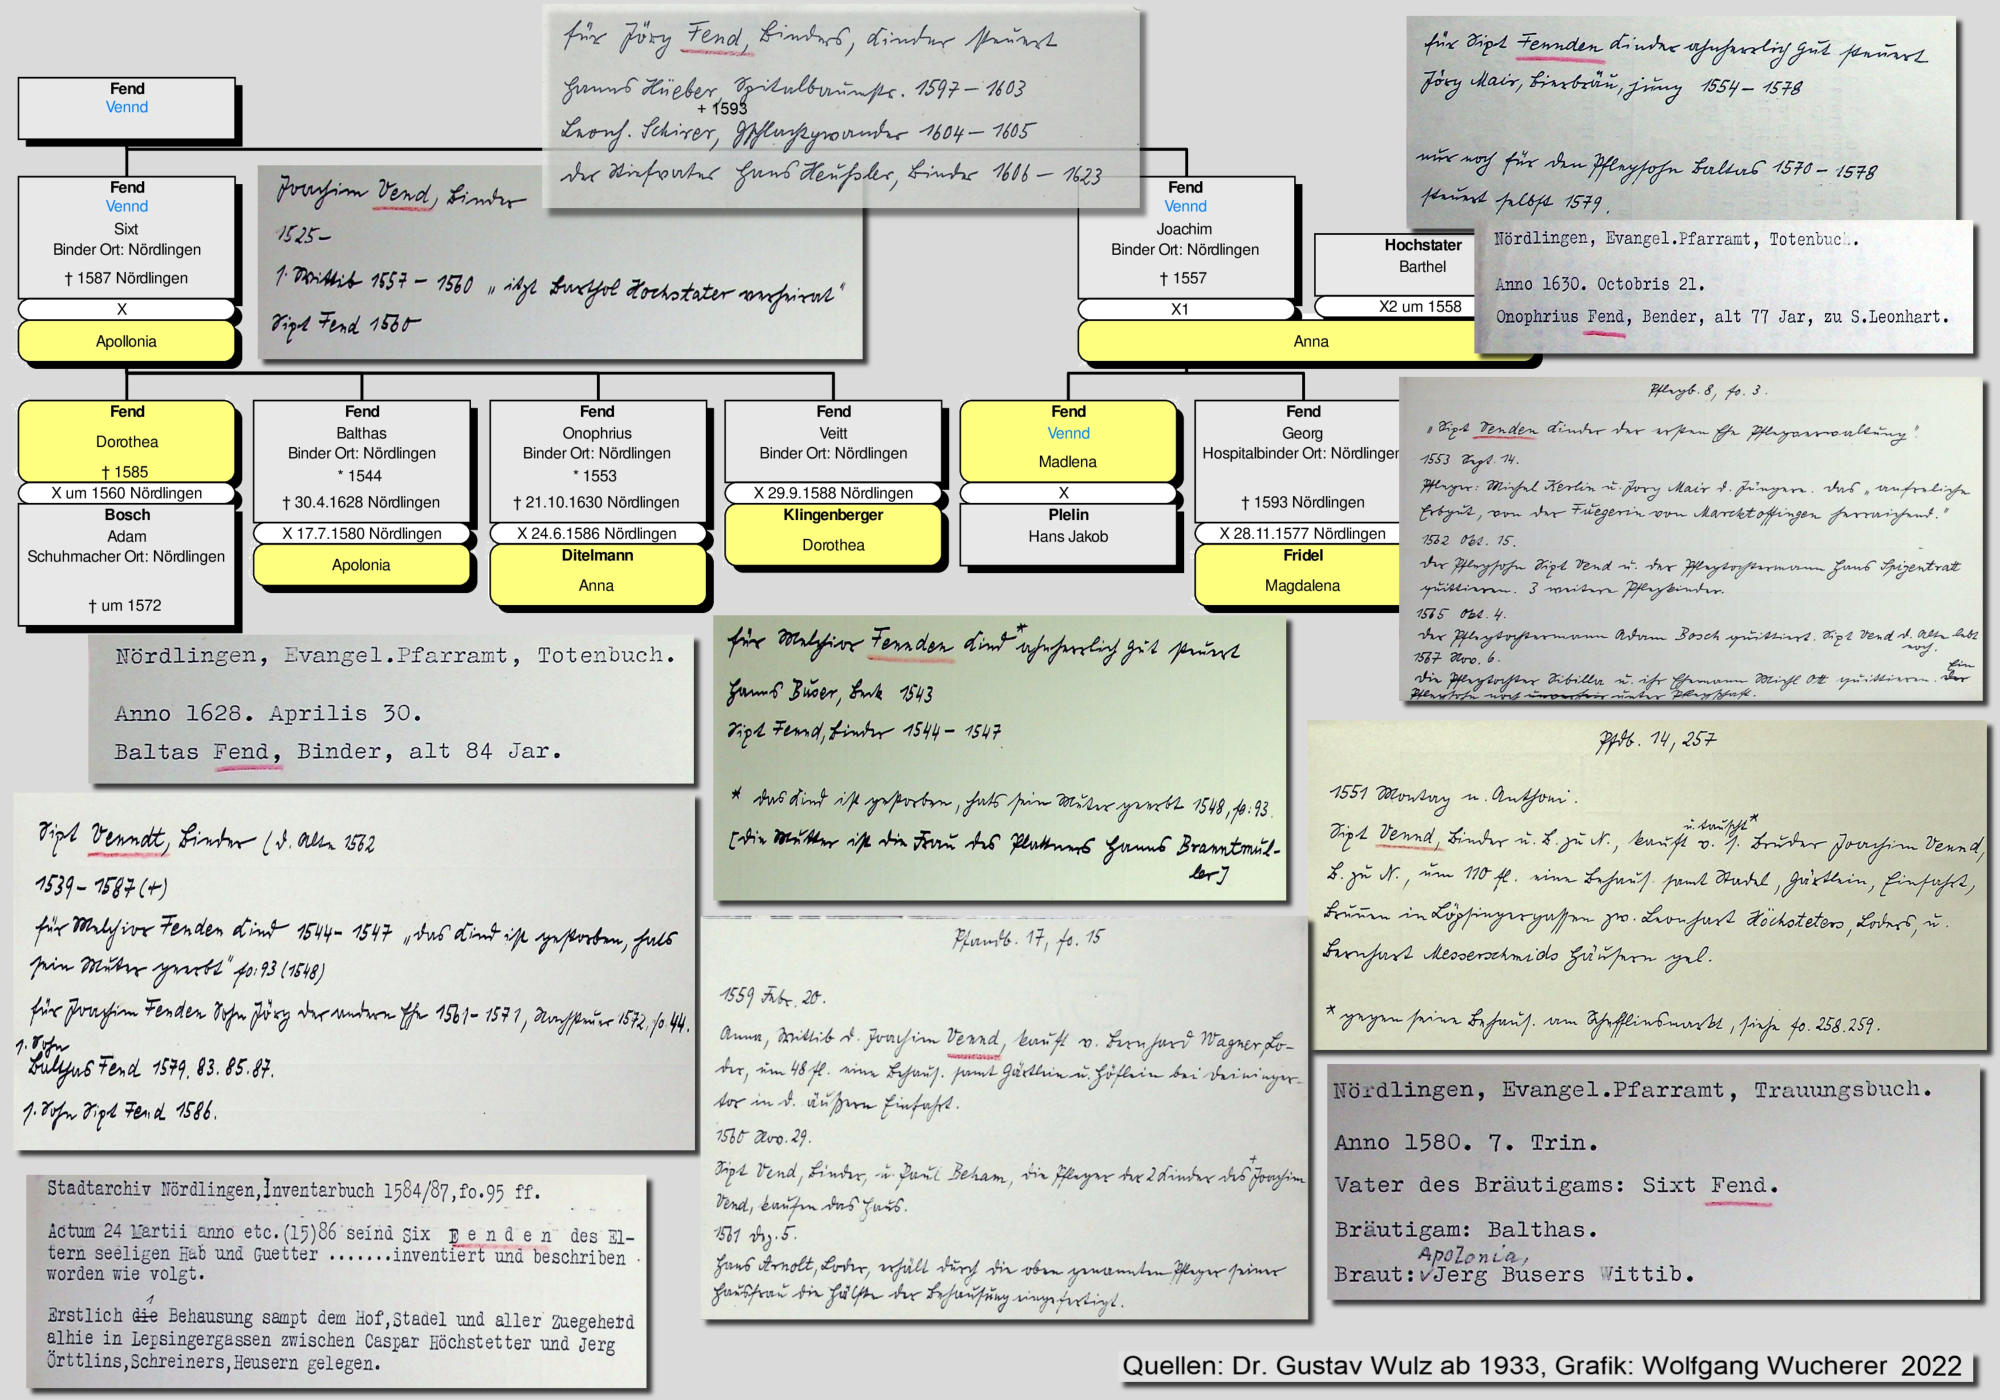 Fend
Vennd
Fend
Vennd
Sixt
Binder Ort: Nördlingen
† 1587 Nördlingen
X
Apollonia
für Jörg Fend, Binders, Kinder steuert
Hanns Hüeber, Spitalbaumstr. 1597 – 1603
+ 1593
Leonh. Schirer, Gschlachtgwander 1604 – 1605
der Stiefvater Hans Heußler, Binder 1606 – 1623
Joachim Vend, Binder
1525 –
s. Wittib 1557 – 1560 „ itzt Barthol Hochstater verheirat"
Sixt Fend 1560
Fend
Vennd
Joachim
Binder Ort: Nördlingen
† 1557
X1
Hochstater
Barthel
X2 um 1558
Anna
für Sixt Fennden Kinder ahnherrlich gut steuert
Jörg Mair, Bierbräu, jung 1554 – 1578
nur noch für den Pflegsohn Baltas 1570 – 1578
steuert selbst 1579.
Nördlingen, Evangel.Pfarramt, Totenbuch.
Anno 1630. Octobris 21.
Onophrius Fend, Bender, alt 77 Jar, zu S.Leonhart.
Fend
Dorothea
† 1585
X um 1560 Nördlingen
Bosch
Adam
Schuhmacher Ort: Nördlingen
† um 1572
Fend
Balthas
Binder Ort: Nördlingen
* 1544
† 30.4.1628 Nördlingen
X 17.7.1580 Nördlingen
Apolonia
Fend
Onophrius
Binder Ort: Nördlingen
* 1553
† 21.10.1630 Nördlingen
X 24.6.1586 Nördlingen
Ditelmann
Anna
Fend
Veitt
Binder Ort: Nördlingen
X 29.9.1588 Nördlingen
Klingenberger
Dorothea
Fend
Vennd
Madlena
X
Plelin
Hans Jakob
Fend
Georg
Hospitalbinder Ort: Nördlingen
† 1593 Nördlingen
X 28.11.1577 Nördlingen
Fridel
Magdalena
Pflegb. 8, fo. 3.
„Sixt Venden Kinder der ersten Ehe Pflegverwaltung"
1553 Sept. 14.
Pfleger: Michel Kerlin u. Jorg Mair d. Jüngere. Das „anfreliche
Erbgut, von der Fuegerin von Marcktoffingen herraichend."
1562 Okt. 15.
Der Pflegsohn Sixt Vend u. der Pflegtochtermann Hans Spizentratt
quittieren. 3 weitere Pflegkinder.
1565 Okt. 4.
Der Pflegtochtermann Adam Bosch quittiert. Sixt Vend d. Alte lebt
noch.
1567 Nov. 6.
Die Pflegtochter Sibilla u. ihr Ehemann Michl Ott quittieren. Ein
Pflegsohn noch unter Pflegschaft.
Nördlingen, Evangel.Pfarramt, Totenbuch.
Anno 1628. Aprilis 30.
Baltas Fend, Binder, alt 84 Jar.
für Melchior Fennden Kind* ahnherrlich gut steuert
Hanns Buser, Beck 1543
Sixt Fennd, Binder 1544 – 1547
* das Kind ist gestorben, hats sein Muter geerbt 1548, fo: 93.
[die Mutter ist die Frau des Plattners Hanns Branntmül-
ler]
Sixt Venndt, Binder (d. Alte 1562
1539 – 1587 (+)
für Melchior Fenden Kind 1544 – 1547 „das Kind ist gestorben, hats
sein Muter geerbt" fo: 93 (1548)
für Joachim Fenden Sohn Jörg der andern Ehe 1561 – 1571, Nachsteuer 1572, fo. 44.
s. Sohn
Balthas Fend 1579. 83. 85. 87.
s. Sohn Sixt Fend 1586.
Pfdb. 14, 257
1551 Montag n. Anthoni.
Sixt Vennd, Binder u. B. zu N., kauft u. tauscht* v. s. Bruder Joachim Vennd,
B. zu N., um 110 fl. eine Behaus. samt Stadel, Gärtlein, Einfahrt,
Brunnen in Löpsingergassen zw. Leonhart Höchsteters, Loders, u.
Bernhart Messerschmids Häusern gel.
* gegen seine Behaus. am Schefflinsmarkt, siehe fo. 258. 259.
Pfandb. 17, fo. 15
1559 Febr. 20.
Anna, Wittib d. Joachim Vennd, kauft v. Bernhard Wagner, Lo-
der, um 48 fl. eine Behaus. samt Gärtlein u. Höflein bei Deininger-
tor in d. äußern Einfahrt.
1560 Nov. 29.
Sixt Vend, Binder, u. Paul Beham, die Pfleger der 2 Kinder des † Joachim
Vend, kaufen das Haus.
1561 Dez. 5.
Hans Arnolt, Loder, erhält durch die oben genannten Pfleger seiner
Hausfrau die Hälfte der Behausung eingefertigt.
Nördlingen, Evangel.Pfarramt, Trauungsbuch.
Anno 1580. 7. Trin.
Vater des Bräutigams: Sixt Fend.
Bräutigam: Balthas.
Apolonia,
Braut: Jerg Busers Wittib.
Stadtarchiv Nördlingen,Inventarbuch 1584/87,fo.95 ff.
Actum 24 Martii anno etc.(15)86 seind Six Fenden des El-
tern seeligen Hab und Guetter .......inventiert und beschriben
worden wie volgt.
Erstlich die Behausung sampt dem Hof,Stadel und aller Zuegeherd
alhie in Lepsingergassen zwischen Caspar Höchstetter und Jerg
Örttlins,Schreiners,Heusern gelegen.
Quellen: Dr. Gustav Wulz ab 1933, Grafik: Wolfgang Wucherer 2022